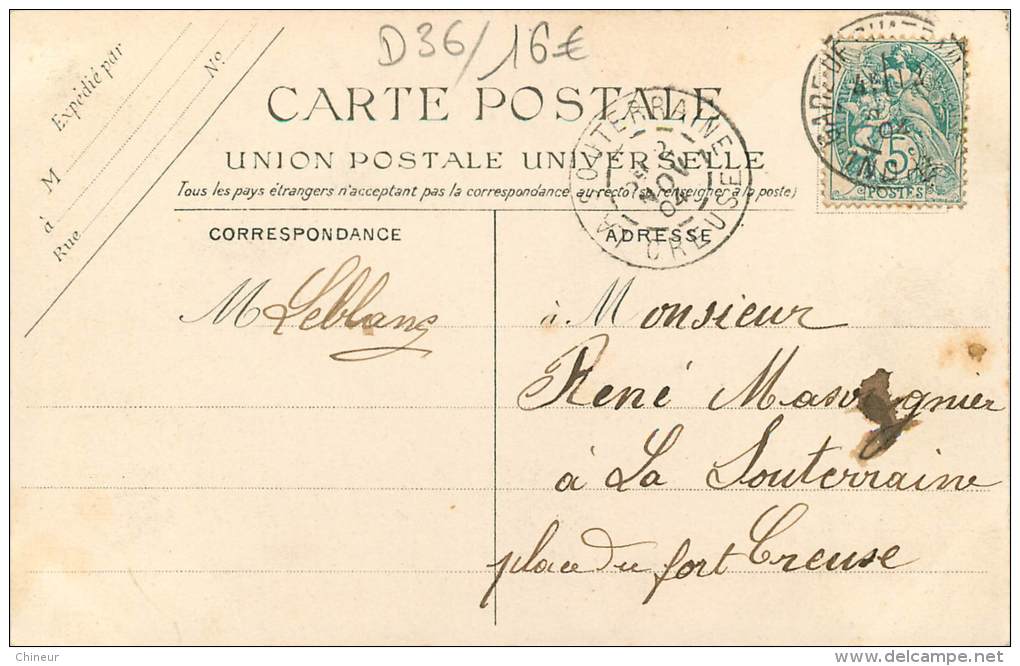 D36/16€
M Expédié par
à
Rue
No
CARTE POSTALE
UNION POSTALE UNIVERSELLE
Tous les pays étrangers n'acceptant pas la correspondance au recto (se renseigner à la poste)
LA SOUTERRAINE
NOV
04
CREUSE
GARE DE
04
5
POSTES
CORRESPONDANCE
ADRESSE
M Leblanc
à Monsieur
René
à La Souterraine
place du fort Creuse
Chineur
delcampe.net